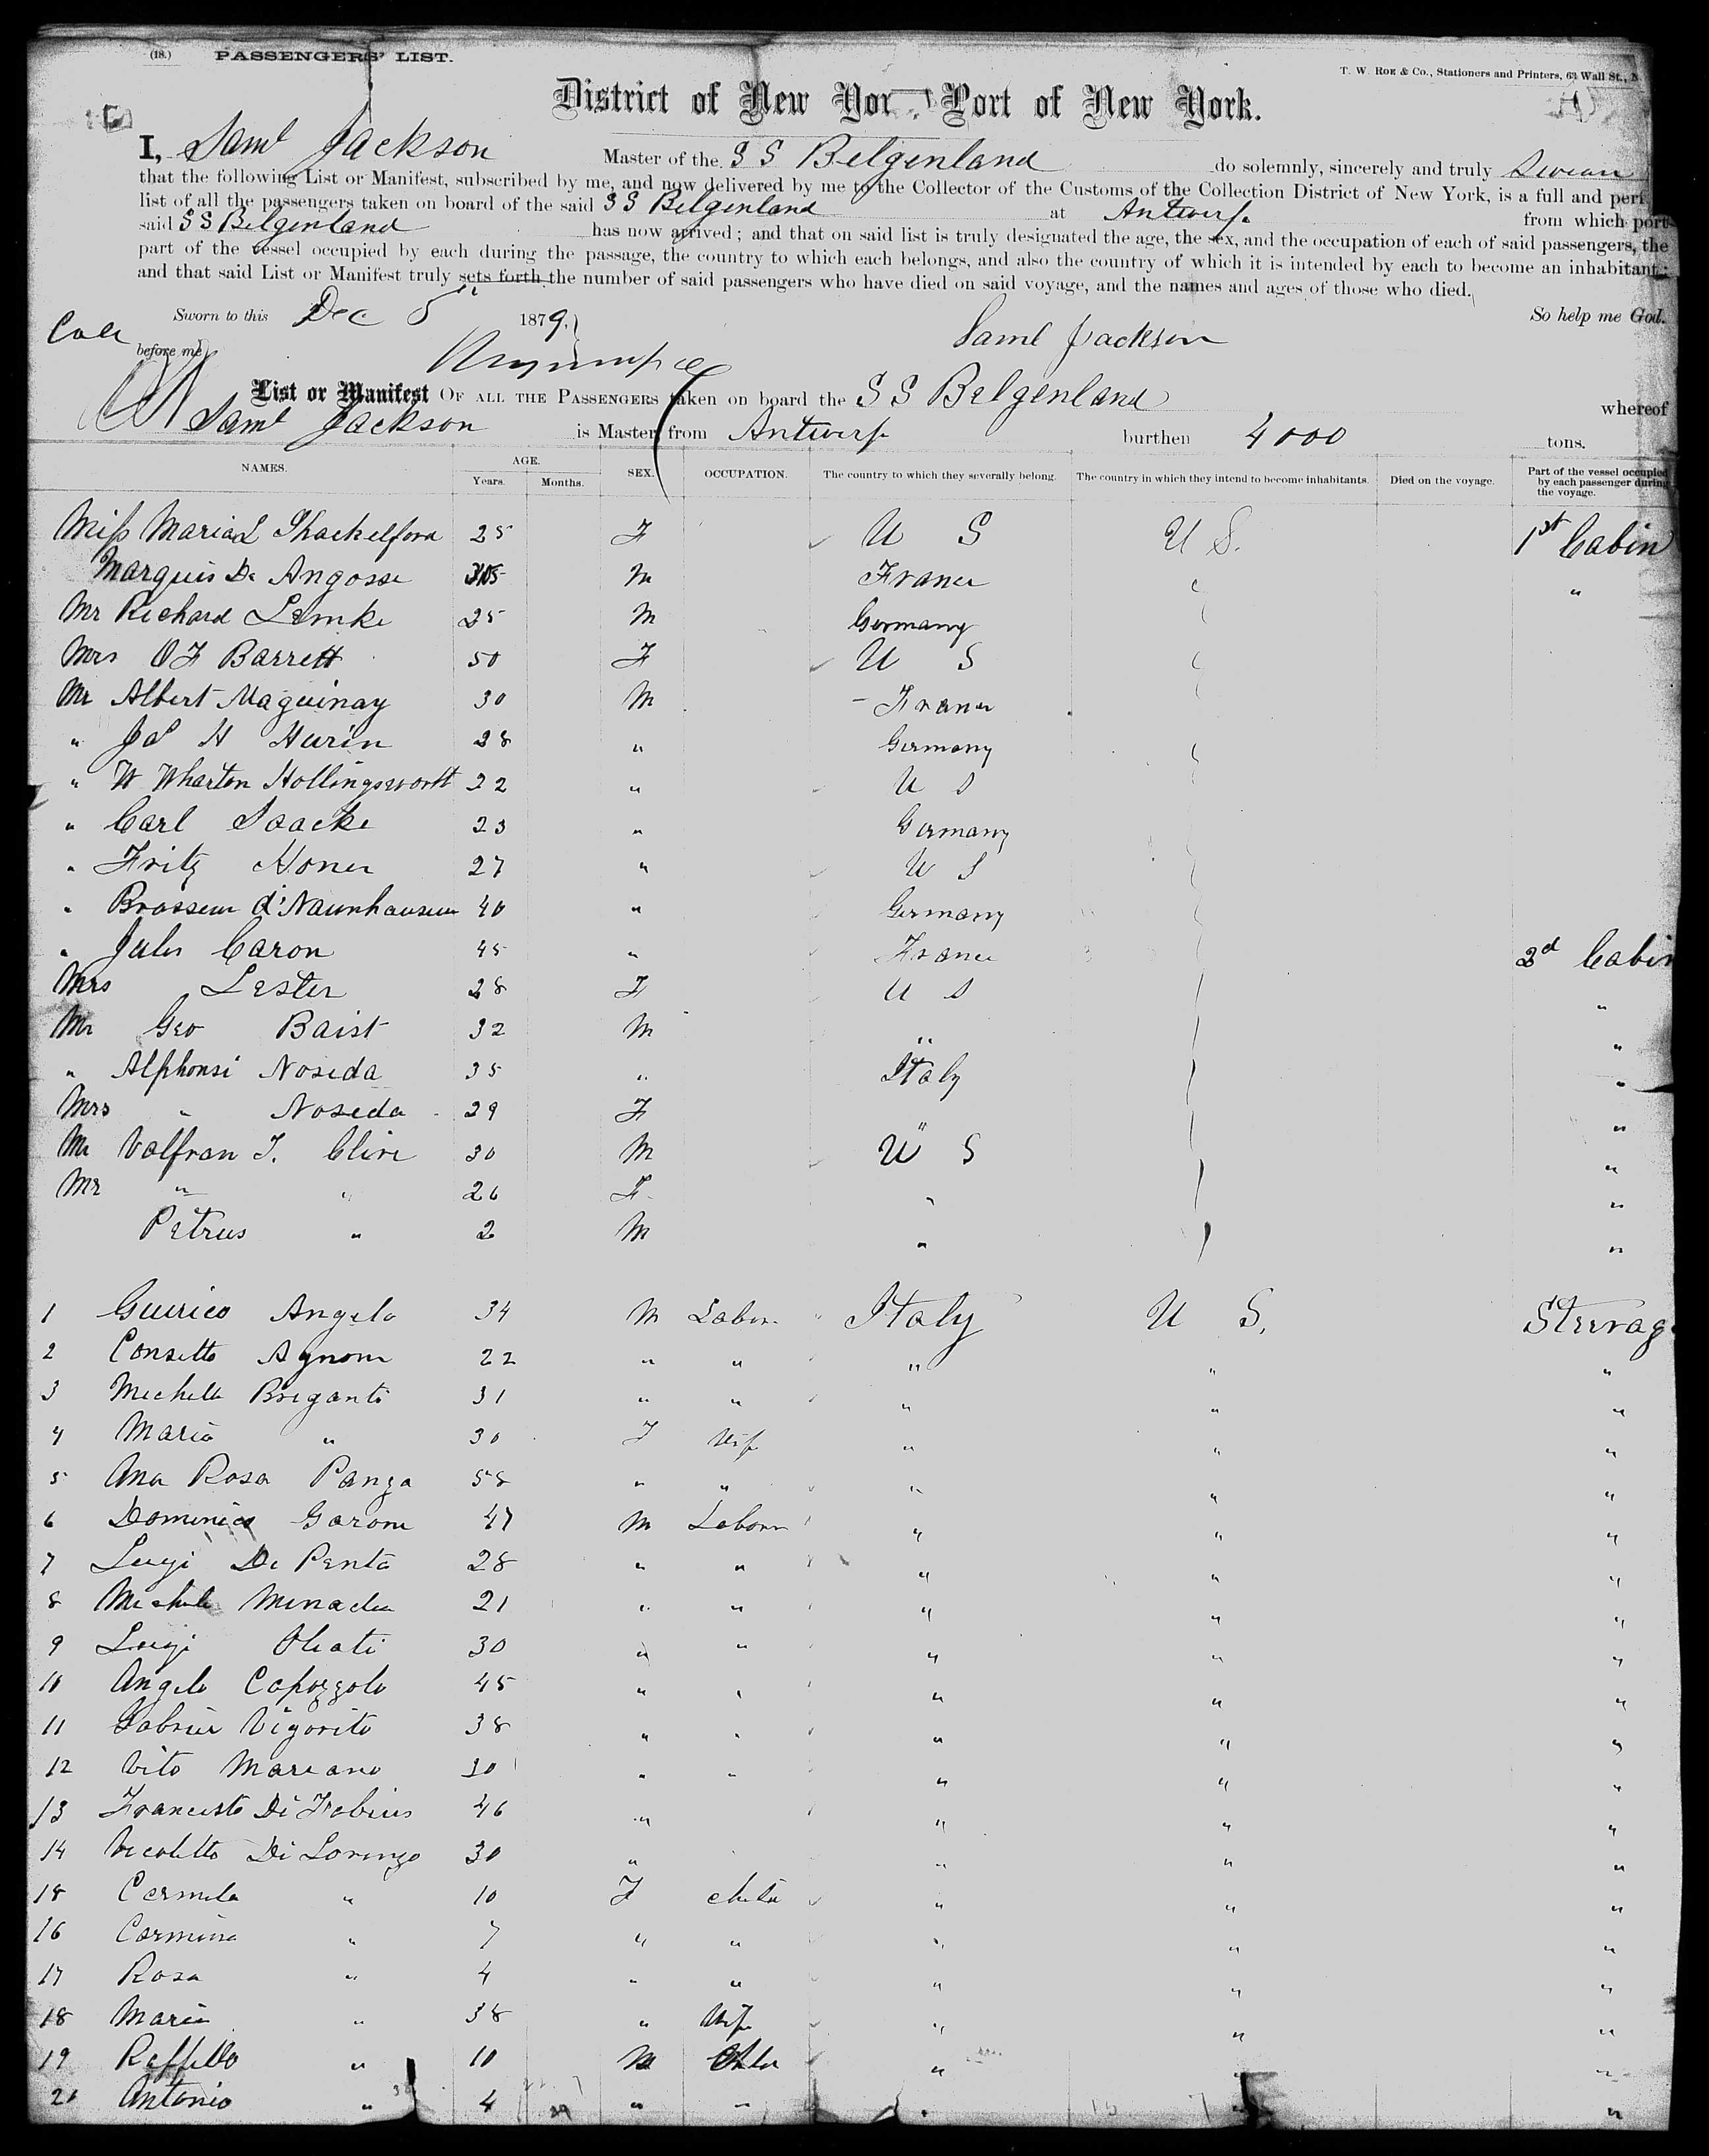 (18.) PASSENGERS' LIST.
T. W. Roe & Co., Stationers and Printers, 63 Wall St., N
District of New Yor Port of New York.
I, Saml Jackson Master of the S S Belgenland do solemnly, sincerely and truly Swear
that the following List or Manifest, subscribed by me, and now delivered by me to the Collector of the Customs of the Collection District of New York, is a full and perf
list of all the passengers taken on board of the said S S Belgenland at Antwerp from which port
said S S Belgenland has now arrived; and that on said list is truly designated the age, the sex, and the occupation of each of said passengers, the
part of the vessel occupied by each during the passage, the country to which each belongs, and also the country of which it is intended by each to become an inhabitant;
and that said List or Manifest truly sets forth the number of said passengers who have died on said voyage, and the names and ages of those who died.
Sworn to this Dec 5 1879. So help me God.
before me Saml Jackson
List or Manifest OF ALL THE PASSENGERS taken on board the S S Belgenland whereof
Saml Jackson is Master, from Antwerp burthen 4000 tons.
NAMES. AGE. Years. Months. SEX. OCCUPATION. The country to which they severally belong. The country in which they intend to become inhabitants. Died on the voyage. Part of the vessel occupied by each passenger during the voyage.
Miss Maria L Shackelford 25 F U S U S. 1st Cabin
Marquis De Angosse M France "
Mr Richard Lemke 25 M Germany
Mrs O F Barrett 50 F U S
Mr Albert Maguinay 30 M France
" Js H Hurin 28 " Germany
" W Wharton Hollingsworth 22 " U S
" Carl Saacke 23 " Germany
" Fritz Honer 27 " U S
" Brasseur d'Naunhausen 40 " Germany
" Jules Caron 45 " France 2d Cabin
Mrs Lester 28 F U S "
Mr Geo Baist 32 M " "
" Alphonse Noseda 35 " Italy "
Mrs " Noseda 29 F " "
Mr Valfran J. Clire 30 M U S "
Mr " " 26 F " "
Petrus " 2 M " "
1 Guirico Angelo 34 M Labor Italy U S. Steerage
2 Consetto Agnone 22 " " " " "
3 Michele Briganti 31 " " " " "
4 Maria " 30 F Wife " " "
5 Ana Rosa Panza 58 " " " " "
6 Dominico Garone 47 M Laborer " " "
7 Luigi De Penta 28 " " " " "
8 Michele Minadeo 21 " " " " "
9 Luigi 30 " " " " "
10 Angelo Capozzolo 45 " " " " "
11 Gabriel Vigorito 38 " " " " "
12 Vito Mareano 30 " " " " "
13 Francesco Di Fabius 46 " " " "
14 Nicoletto Di Lorenzo 30 " " " "
15 Carmela " 10 F child " " "
16 Carmina " 7 " " " " "
17 Rosa " 4 " " " " "
18 Maria " 38 " Wife " " "
19 Raffello " 10 M Child " " "
20 Antonio " 4 " " " " "